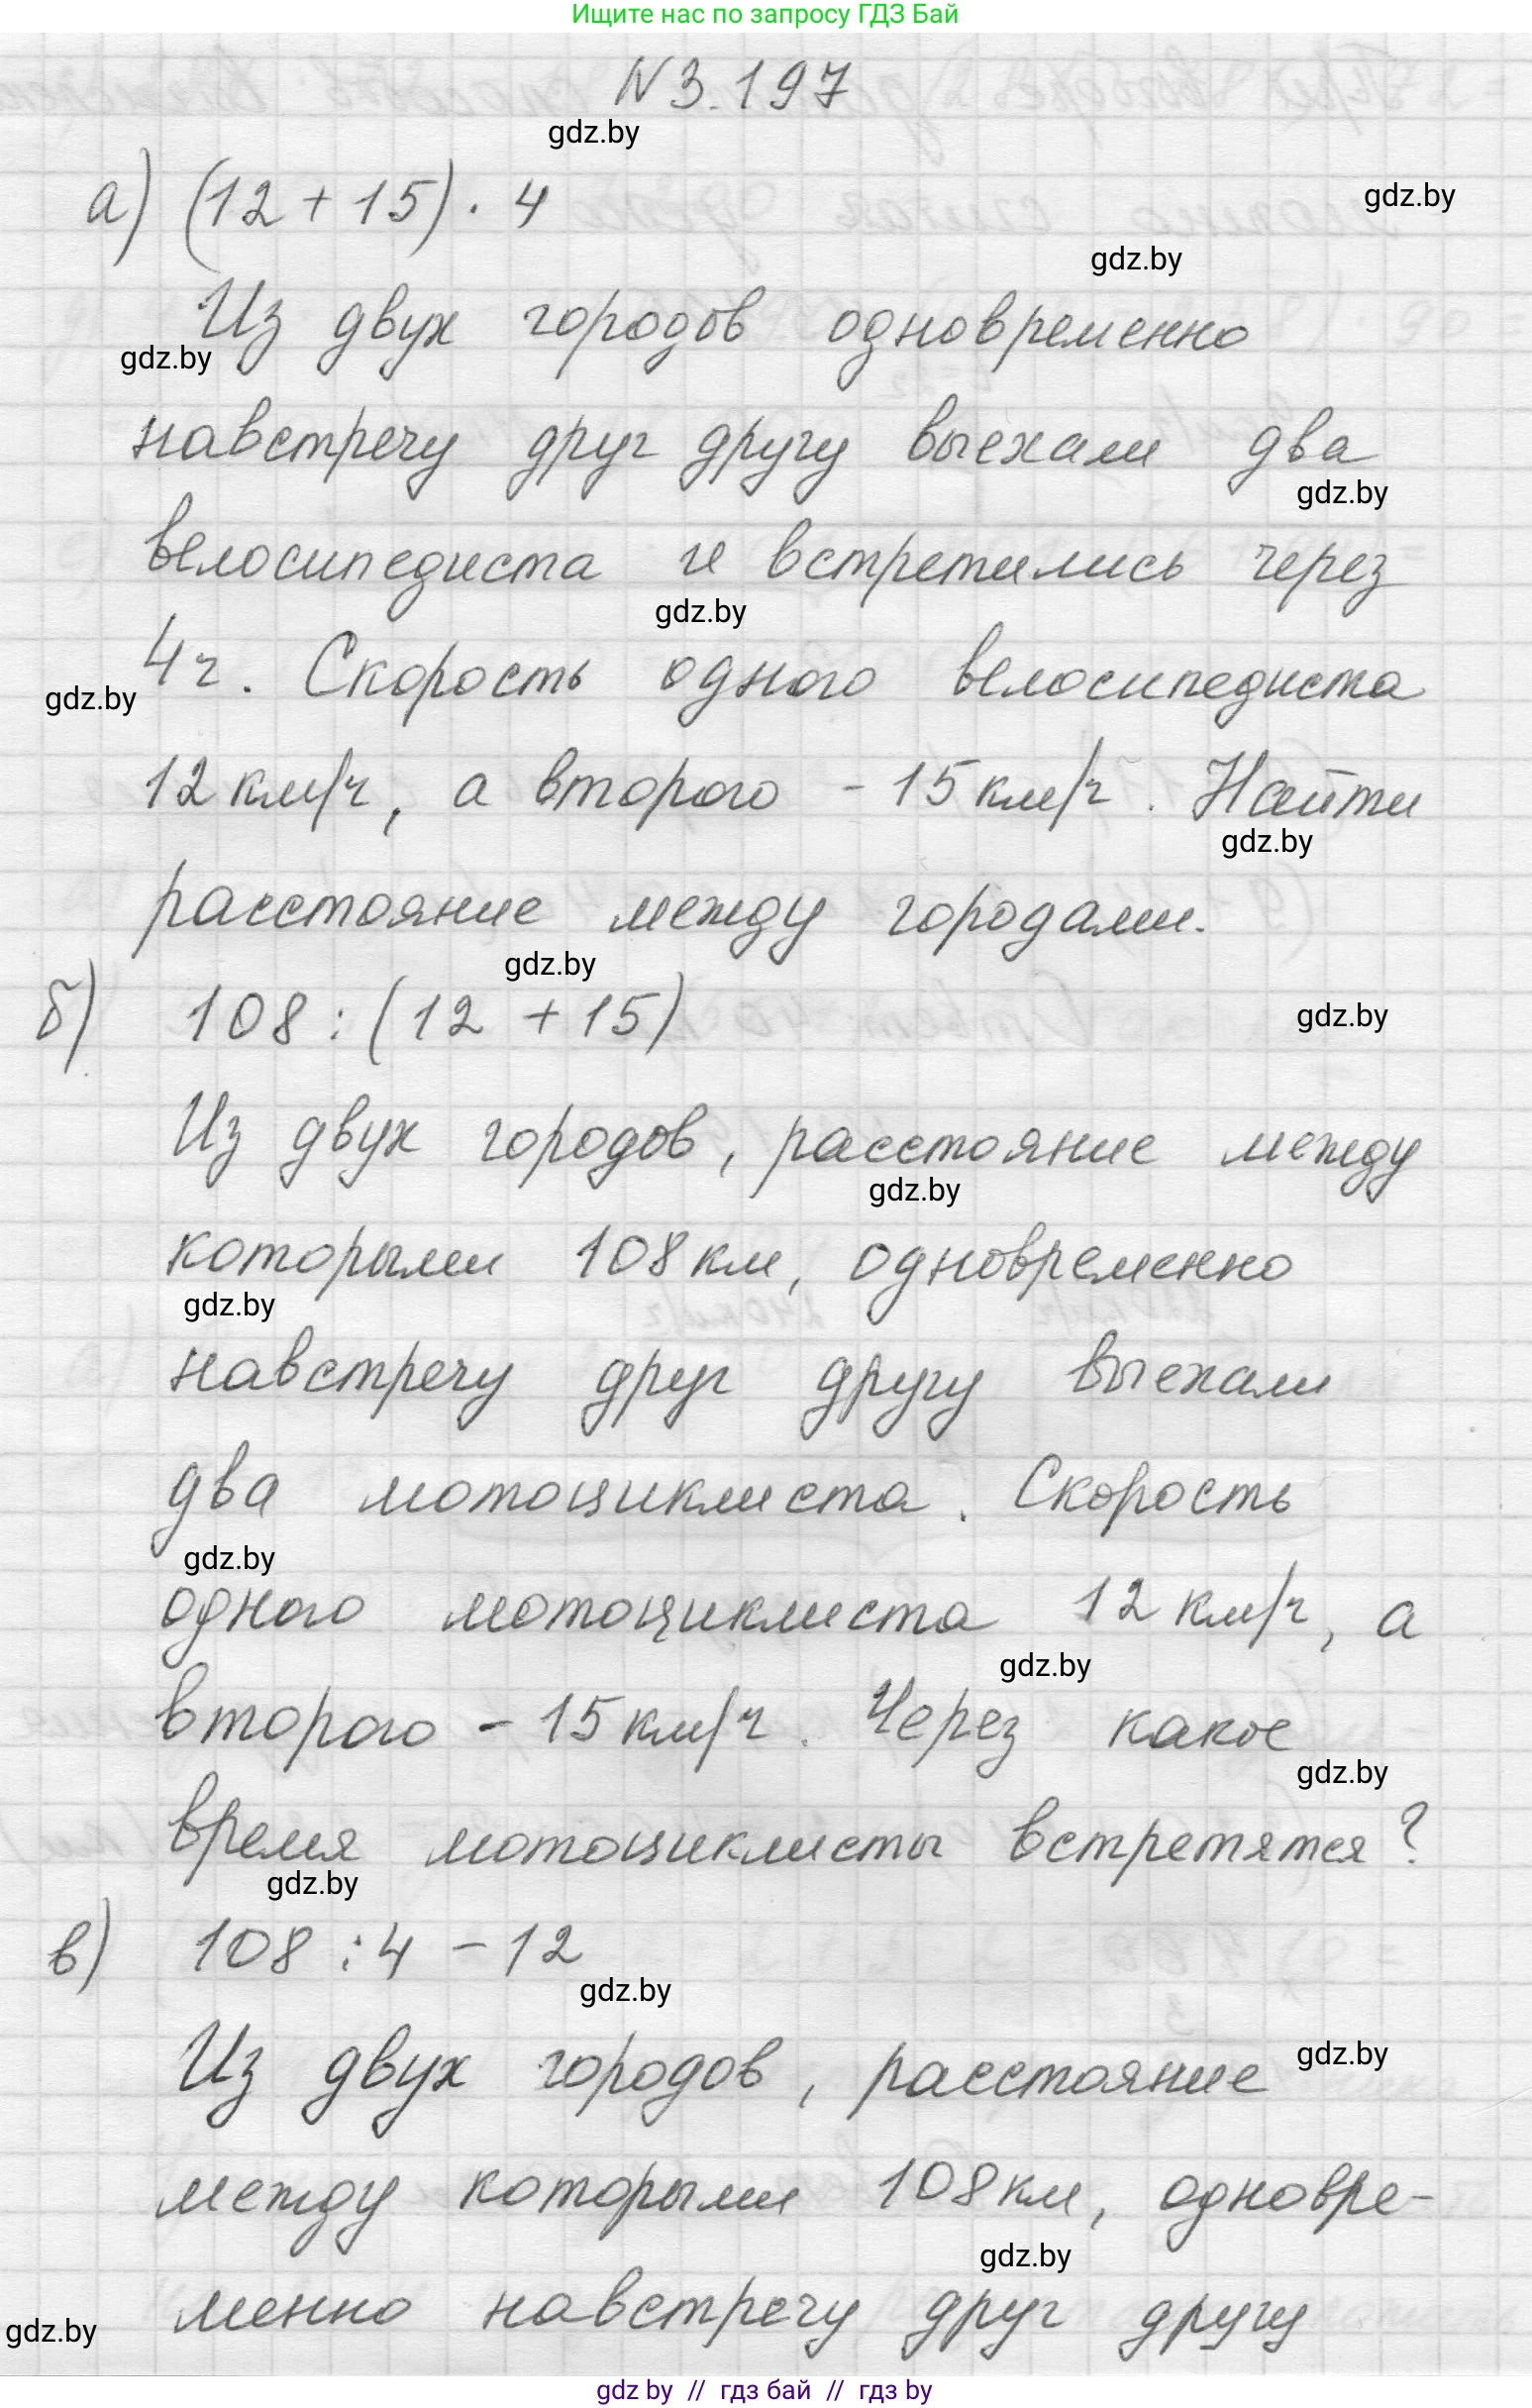 Ищите нас по запросу ГДЗ Бай
N 3.197
gdz.by
а) (12 + 15) · 4
gdz.by
gdz.by
Из двух городов одновременно
gdz.by
навстречу друг другу выехали два
gdz.by
велосипедиста и встретились через
gdz.by
4ч. Скорость одного велосипедиста
gdz.by
12 км/ч, а второго - 15 км/ч. Найти
gdz.by
расстояние между городами.
gdz.by
б) 108 : (12 + 15)
gdz.by
Из двух городов, расстояние между
gdz.by
которыми 108 км, одновременно
gdz.by
навстречу друг другу выехали
два мотоциклиста. Скорость
gdz.by
одного мотоциклиста 12 км/ч, а
gdz.by
второго - 15 км/ч. Через какое
gdz.by
время мотоциклисты встретятся?
gdz.by
в) 108 : 4 - 12
gdz.by
Из двух городов, расстояние
gdz.by
между которыми 108 км, одновре-
gdz.by
менно навстречу друг другу
gdz.by
gdz by // гдз бай // гдз by